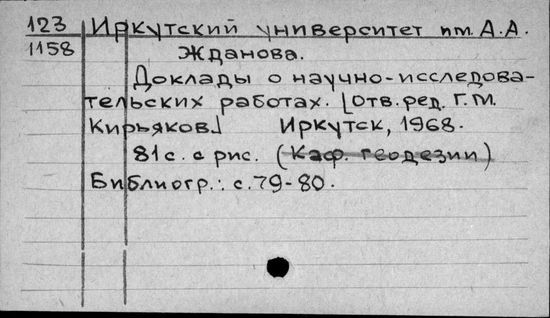 123 Иркутский университет им. А.А.
1158 Жданова.
Доклады о научно-исследова-
тельских работах. [Отв. ред. Г.М.
Кирьяков] Иркутск, 1968.
81 с. с рис. (Каф. геодезии)
Библиогр.: с. 79-80.